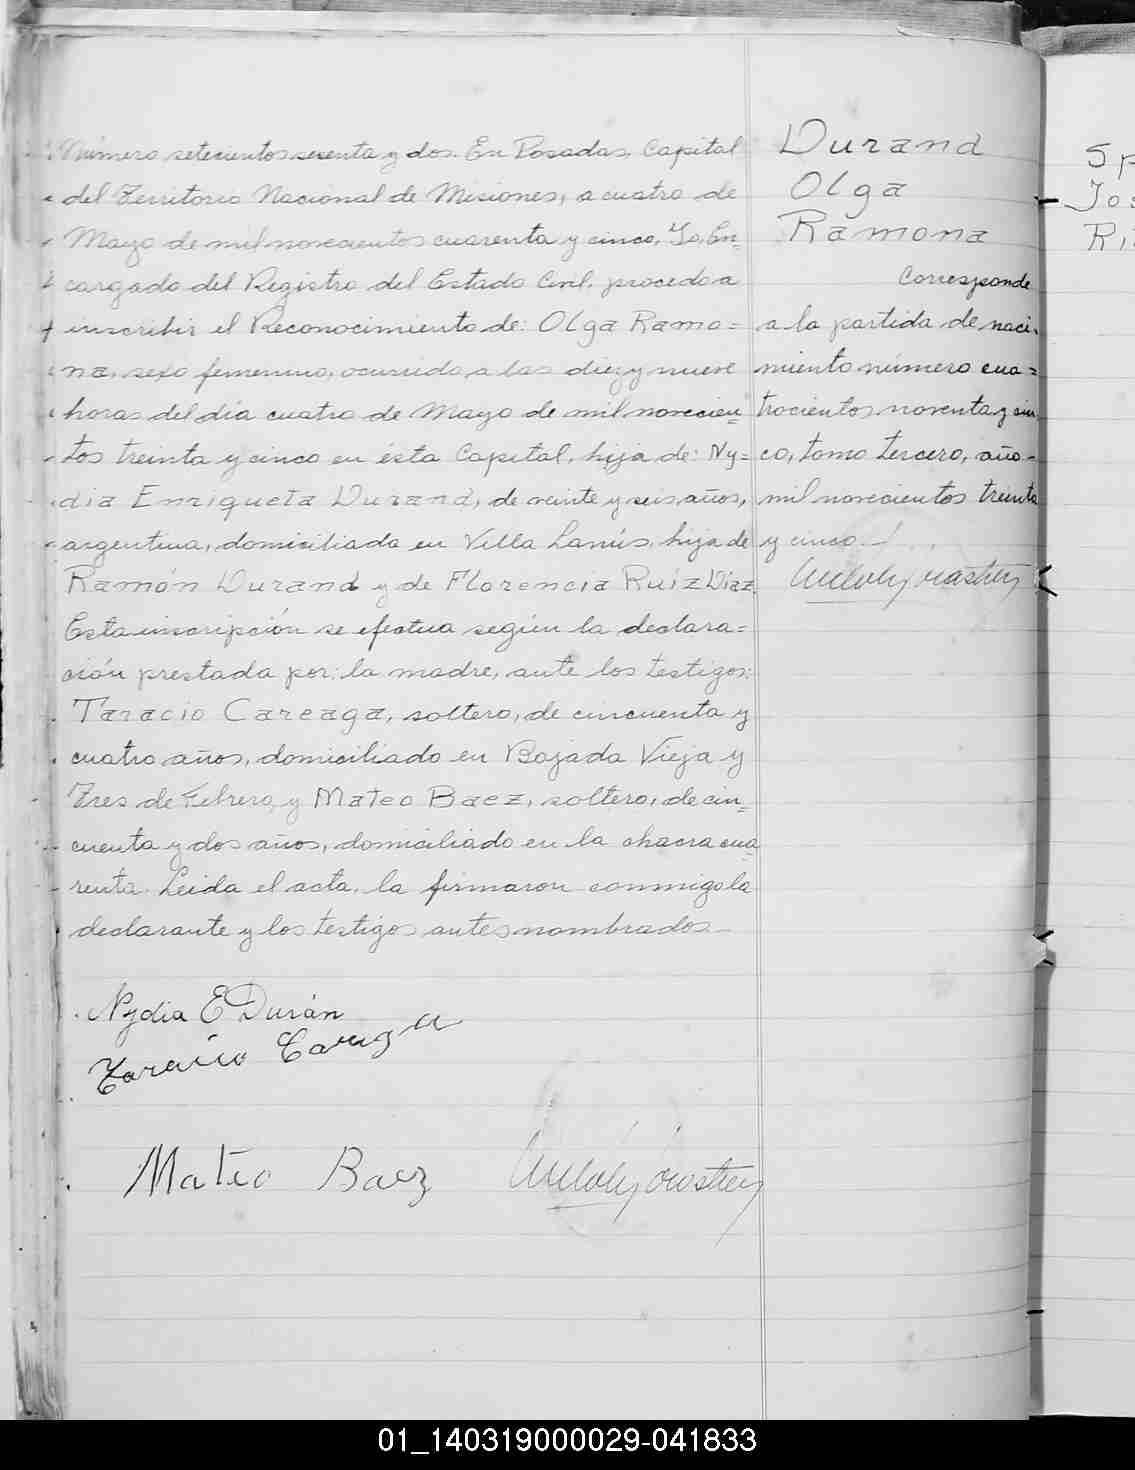 Número setecientos sesenta y dos. En Posadas, Capital
del Territorio Nacional de Misiones, a cuatro de
Mayo de mil novecientos cuarenta y cinco, Yo, En=
cargado del Registro del Estado Civil, procedo a
inscribir el Reconocimiento de: Olga Ramo=
na, sexo femenino, ocurrido a las diez y nueve
horas del día cuatro de Mayo de mil novecien=
tos treinta y cinco en ésta Capital, hija de: Ny=
dia Enriqueta Durand, de veinte y seis años,
argentina, domiciliada en Villa Lanús, hija de
Ramón Durand y de Florencia Ruíz Diaz.
Esta inscripción se efectua según la declara=
ción prestada por: la madre, ante los testigos:
Taracio Careaga, soltero, de cincuenta y
cuatro años, domiciliado en Bajada Vieja y
Tres de Febrero, y Mateo Baez, soltero, de cin=
cuenta y dos años, domiciliado en la chacra cua
renta. Leida el acta, la firmaron conmigo la
declarante y los testigos antes nombrados.
Nydia E Durán
Mateo Baez
Durand
Olga
Ramona
Corresponde
a la partida de naci=
miento número cua=
trocientos noventa y cin
co, tomo tercero, año
mil novecientos treinta
y cinco.
Sp
Jos
Ri
01_140319000029-041833